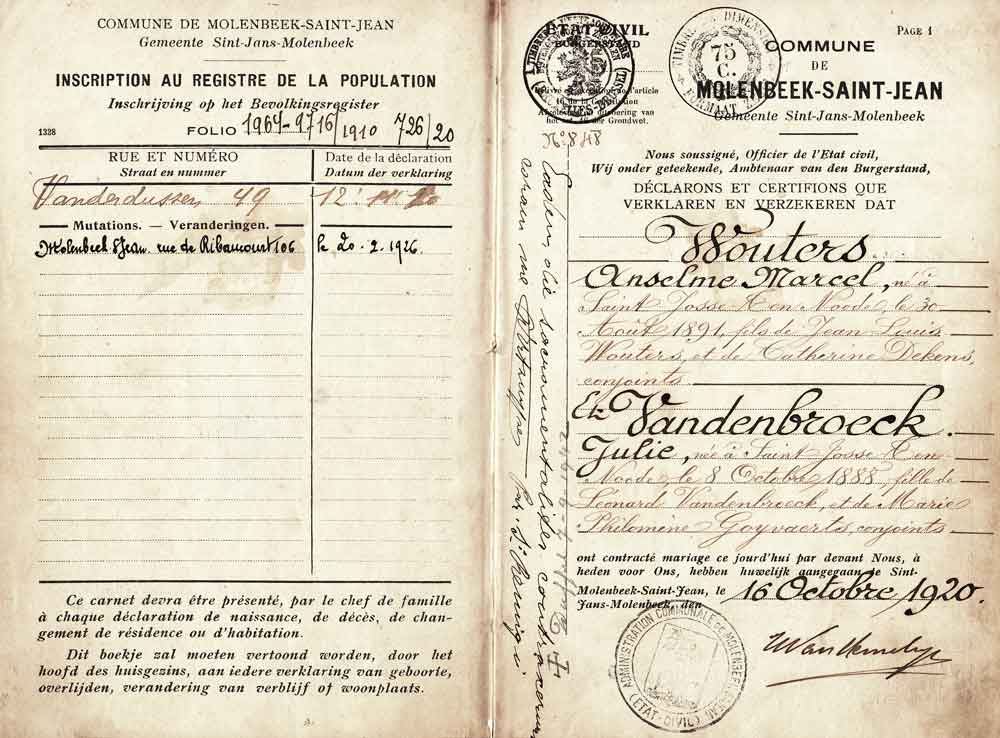 COMMUNE DE MOLENBEEK-SAINT-JEAN
Gemeente Sint-Jans-Molenbeek
INSCRIPTION AU REGISTRE DE LA POPULATION
Inschrijving op het Bevolkingsregister
1328
FOLIO 1964-9716/1910 726/20
RUE ET NUMÉRO
Straat en nummer
Date de la déclaration
Datum der verklaring
Vanderdussen 49
12
Mutations. — Veranderingen.
Molenbeek St Jean. rue de Ribaucourt 106
le 20. 2. 1926.
Ce carnet devra être présenté, par le chef de famille
à chaque déclaration de naissance, de décès, de chan-
gement de résidence ou d'habitation.
Dit boekje zal moeten vertoond worden, door het
hoofd des huisgezins, aan iedere verklaring van geboorie,
overlijden, verandering van verblijf of woonplaats.
ETAT CIVIL
BURGERSTAND
l'article
16 de la Constitution
van
het Grondwet.
TIMBRE DE DIMENSION
75
C.
FORMAAT ZEGEL
PAGE 1
COMMUNE
DE
MOLENBEEK-SAINT-JEAN
Gemeente Sint-Jans-Molenbeek
No 848
Eadem die sacramentaliter contraxerunt
coram me
Nous soussigné, Officier de l'Etat civil,
Wij onder geteekende, Ambtenaar van den Burgerstand,
DÉCLARONS ET CERTIFIONS QUE
VERKLAREN EN VERZEKEREN DAT
Wouters
Anselme Marcel, né à
Saint Josse ten Noode, le 30
Août 1891, fils de Jean Louis
Wouters, et de Catherine Dekens,
conjoints
Et Vandenbroeck
Julie, née à Saint Josse ten
Noode le 8 Octobre 1888, fille de
Léonard Vandenbroeck, et de Marie
Philomène Goyvaerts, conjoints
ont contracté mariage ce jourd'hui par devant Nous, à
heden voor Ons, hebben huwelijk aangegaan te Sint-
Molenbeek-Saint-Jean, le 16 Octobre 1920.
Jans-Molenbeek, den
ADMINISTRATION COMMUNALE DE MOLENBEEK-ST-JEAN
(ETAT-CIVIL)